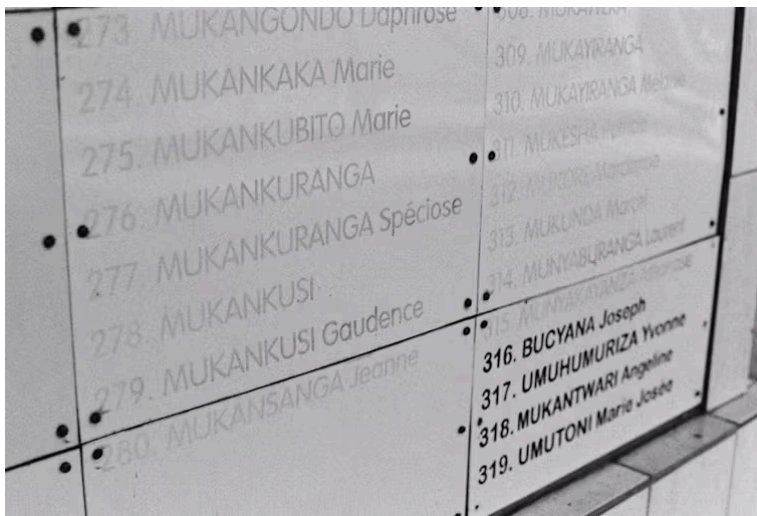 273. MUKANGONDO Daphrose
274. MUKANKAKA Marie
275. MUKANKUBITO Marie
276. MUKANKURANGA
277. MUKANKURANGA Spéciose
278. MUKANKUSI
279. MUKANKUSI Gaudence
280. MUKANSANGA Jeanne
308.
309. MUKAYIRANGA
310. MUKAYIRANGA
311. MUKESHA
312.
313. MUKUNDA Marcel
314. MUNYABURANGA Laurent
315. MUNYAKAYANZA
316. BUCYANA Joseph
317. UMUHUMURIZA Yvonne
318. MUKANTWARI Angeline
319. UMUTONI Marie Josée